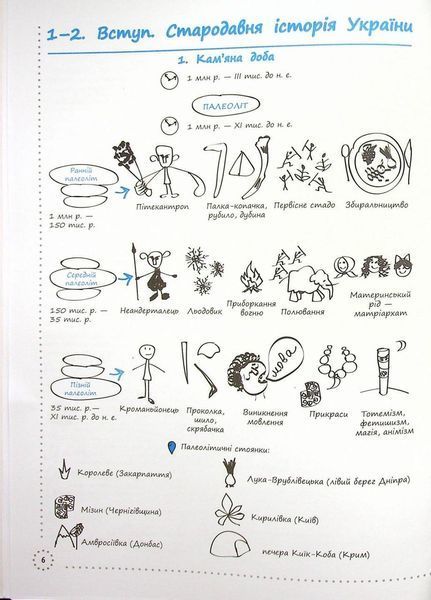 1–2. Вступ. Стародавня історія України
1. Кам'яна доба
1 млн р. — III тис. до н. е.
ПАЛЕОЛІТ
1 млн р. — XI тис. до н. е.
Ранній
палеоліт
1 млн р. —
150 тис. р.
Пітекантроп
Палка-копачка,
рубило, дубина
Первісне стадо
Збиральництво
Середній
палеоліт
150 тис. р. —
35 тис. р.
Неандерталець
Льодовик
Приборкання
вогню
Полювання
Материнський
рід —
матріархат
Пізній
палеоліт
35 тис. р. —
XI тис. р. до н. е.
Кроманьйонець
Проколка,
шило,
скрябачка
мова
Виникнення
мовлення
Прикраси
Тотемізм,
фетишизм,
магія, анімізм
Палеолітичні стоянки:
Королеве (Закарпаття)
Лука-Врублівецька (лівий берег Дніпра)
Мізин (Чернігівщина)
Кирилівка (Київ)
Амвросіївка (Донбас)
печера Киїк-Коба (Крим)
6